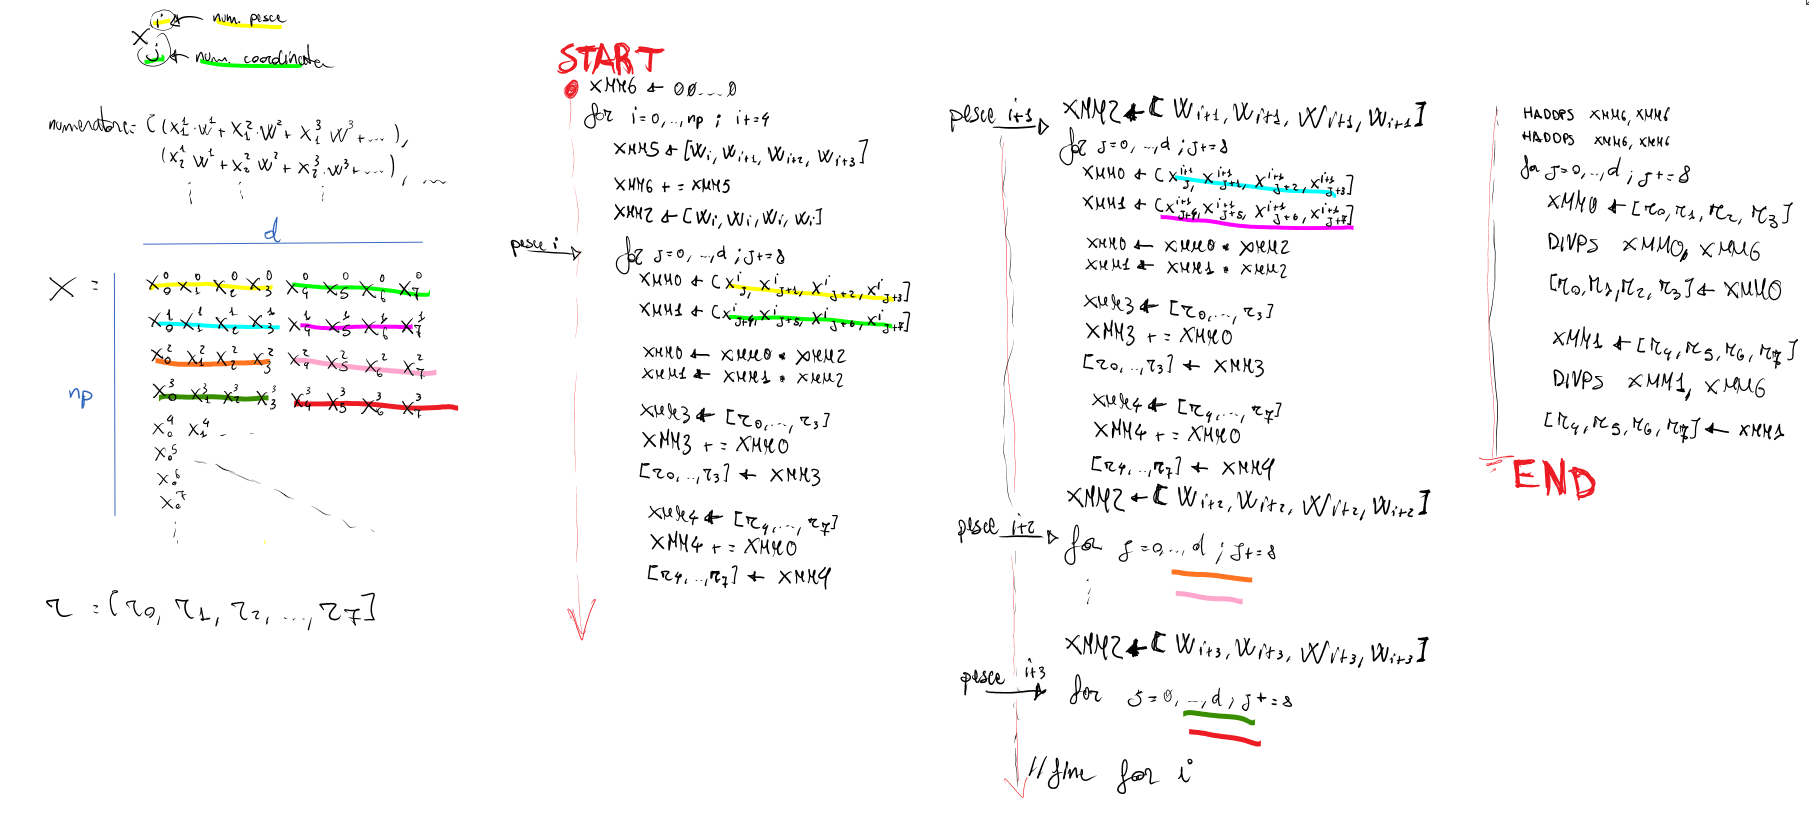 i ← num. pesce
x
j ← num. coordinata
numeratore = [(x₁¹·w¹ + x₁²·w² + x₁³·w³ + ...),
(x₂¹ w¹ + x₂² w² + x₂³·w³ + ...), ...
d
X =
np
x₀⁰ x₁⁰ x₂⁰ x₃⁰ x₄⁰ x₅⁰ x₆⁰ x₇⁰
x₀¹ x₁¹ x₂¹ x₃¹ x₄¹ x₅¹ x₆¹ x₇¹
x₀² x₁² x₂² x₃² x₄² x₅² x₆² x₇²
x₀³ x₁³ x₂³ x₃³ x₄³ x₅³ x₆³ x₇³
x₀⁴ x₁⁴ ...
x₀⁵
x₀⁶
x₀⁷
r = [r₀, r₁, r₂, ..., r₇]
START
XMM6 ← 00....0
for i=0,..,np ; i+=4
XMM5 ← [Wi, Wi+1, Wi+2, Wi+3]
XMM6 += XMM5
XMM2 ← [Wi, Wi, Wi, Wi]
pesce i
for j=0,..,d ; j+=8
XMM0 ← [xⁱj, xⁱj+1, xⁱj+2, xⁱj+3]
XMM1 ← [xⁱj+4, xⁱj+5, xⁱj+6, xⁱj+7]
XMM0 ← XMM0 * XMM2
XMM1 ← XMM1 * XMM2
XMM3 ← [r₀,..., r₃]
XMM3 += XMM0
[r₀,..,r₃] ← XMM3
XMM4 ← [r₄,..., r₇]
XMM4 += XMM0
[r₄,..,r₇] ← XMM4
pesce i+1
XMM2 ← [Wi+1, Wi+1, Wi+1, Wi+1]
for j=0,..,d ; j+=8
XMM0 ← [xⁱ⁺¹j, xⁱ⁺¹j+1, xⁱ⁺¹j+2, xⁱ⁺¹j+3]
XMM1 ← [xⁱ⁺¹j+4, xⁱ⁺¹j+5, xⁱ⁺¹j+6, xⁱ⁺¹j+7]
XMM0 ← XMM0 * XMM2
XMM1 ← XMM1 * XMM2
XMM3 ← [r₀,..., r₃]
XMM3 += XMM0
[r₀,..,r₃] ← XMM3
XMM4 ← [r₄,..., r₇]
XMM4 += XMM0
[r₄,..,r₇] ← XMM4
XMM2 ← [Wi+2, Wi+2, Wi+2, Wi+2]
pesce i+2
for j=0,..,d ; j+=8
XMM2 ← [Wi+3, Wi+3, Wi+3, Wi+3]
pesce i+3
for j=0,..,d ; j+=8
//fine for i
HADDPS XMM6, XMM6
HADDPS XMM6, XMM6
for j=0,..,d ; j+=8
XMM0 ← [r₀, r₁, r₂, r₃]
DIVPS XMM0, XMM6
[r₀, r₁, r₂, r₃] ← XMM0
XMM1 ← [r₄, r₅, r₆, r₇]
DIVPS XMM1, XMM6
[r₄, r₅, r₆, r₇] ← XMM1
END